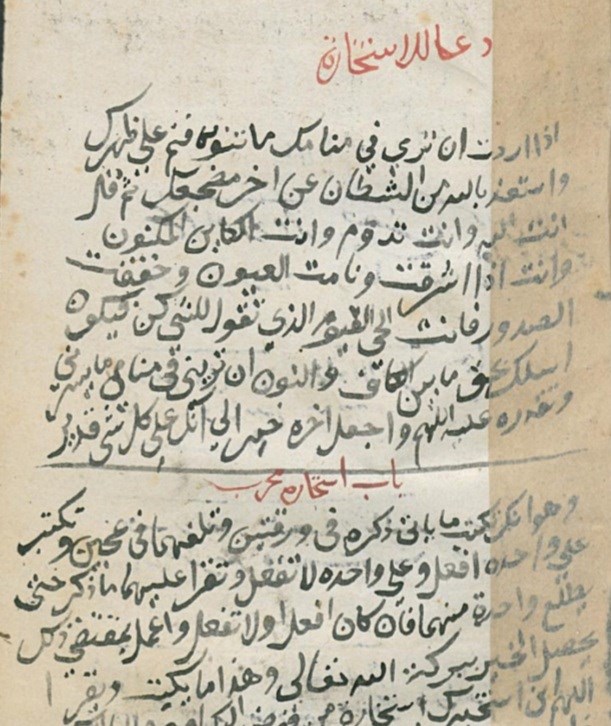 دعا للاستخارة
اذا اردت ان ترى في منامك ما تنويه فنم على ظهرك
واستعذ بالله من الشيطان عن اخر مضجعك ثم قل
انت الله وانت تدوم وانت الكاين المكنون
وانت اذا اشرقت ونامت العيون وخفقت
الصدور فانت الحي القيوم الذي تقول للشي كن فيكون
اسلك بحق ما بين الكاف والنون ان تريني في منامي ما
وتقدره عليه اللهم واجعل اخره خير الي انك على كل شي قدير
باب استخاره مجرب
وهو انك تكتب ما ياتي ذكره في ورقتين وتلفهما في عجين وتكتب
على واحده افعل وعلى واحده لا تفعل وتقرا عليهما ما ذكر حتى
يطلع واحدة منهما فان كان افعل اولا تفعل واعمل بمقتضى ذلك
يحصل الخير ببركة الله تعالى وهذا ما يكتب ويقرا
اللهم اني استخيرك استخارة من